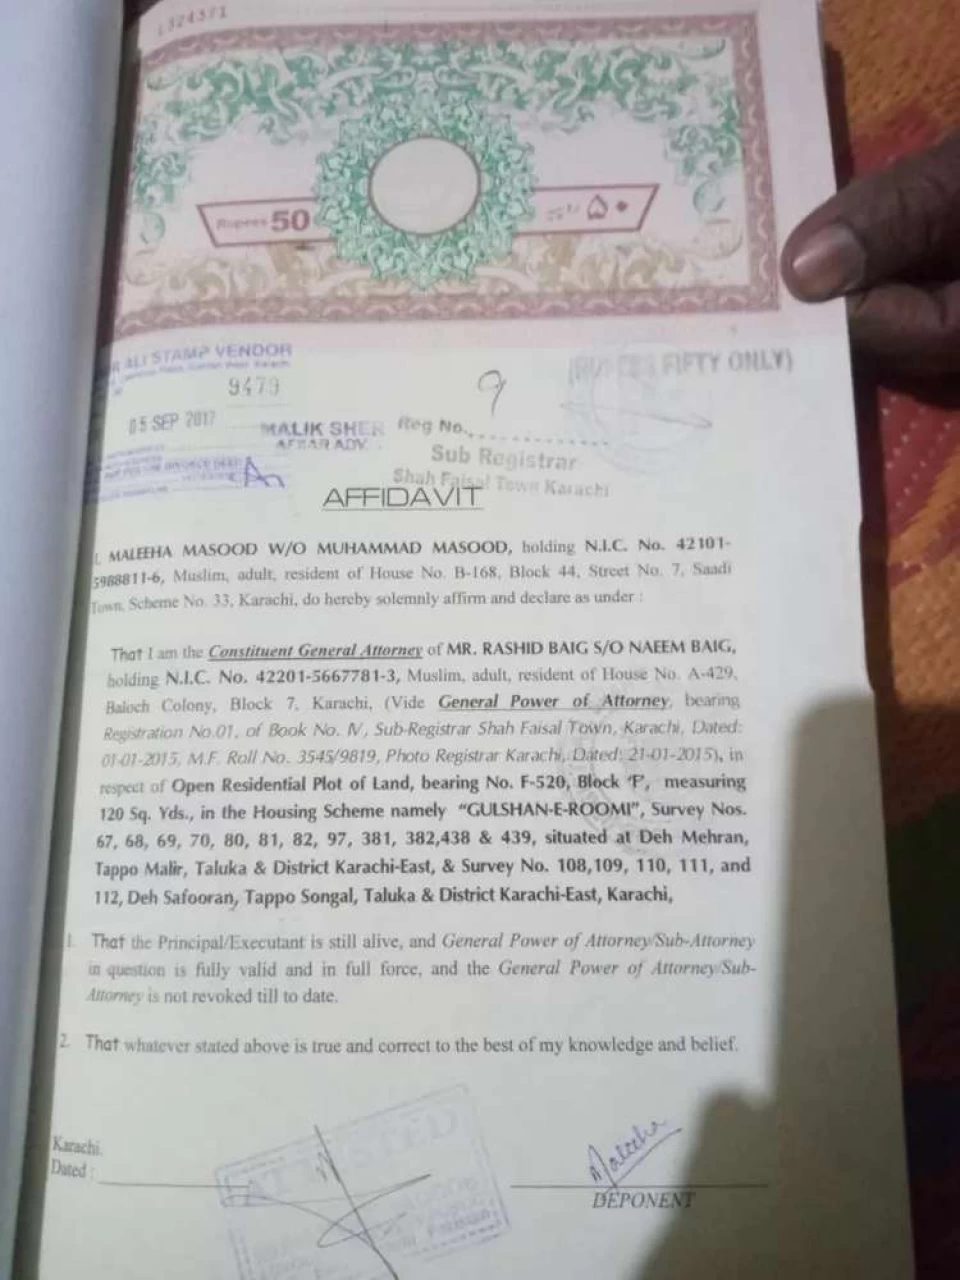 L324371
Rupees 50
۵۰
ALI STAMP VENDOR
9479
05 SEP 2017
MALIK SHER
AFSAR ADV.
(RUPEES FIFTY ONLY)
9
Reg No.
Sub Registrar
Shah Faisal Town Karachi
AFFIDAVIT
I, MALEEHA MASOOD W/O MUHAMMAD MASOOD, holding N.I.C. No. 42101-
5988811-6, Muslim, adult, resident of House No. B-168, Block 44, Street No. 7, Saadi
Town, Scheme No. 33, Karachi, do hereby solemnly affirm and declare as under :
That I am the Constituent General Attorney of MR. RASHID BAIG S/O NAEEM BAIG,
holding N.I.C. No. 42201-5667781-3, Muslim, adult, resident of House No. A-429,
Baloch Colony, Block 7, Karachi, (Vide General Power of Attorney, bearing
Registration No.01, of Book No. IV, Sub-Registrar Shah Faisal Town, Karachi, Dated:
01-01-2015, M.F. Roll No. 3545/9819, Photo Registrar Karachi, Dated: 21-01-2015), in
respect of Open Residential Plot of Land, bearing No. F-520, Block 'F', measuring
120 Sq. Yds., in the Housing Scheme namely "GULSHAN-E-ROOMI", Survey Nos.
67, 68, 69, 70, 80, 81, 82, 97, 381, 382,438 & 439, situated at Deh Mehran,
Tappo Malir, Taluka & District Karachi-East, & Survey No. 108,109, 110, 111, and
112, Deh Safooran, Tappo Songal, Taluka & District Karachi-East, Karachi,
1. That the Principal/Executant is still alive, and General Power of Attorney/Sub-Attorney
in question is fully valid and in full force, and the General Power of Attorney/Sub-
Attorney is not revoked till to date.
2. That whatever stated above is true and correct to the best of my knowledge and belief.
Karachi.
Dated :
Maleeha
DEPONENT